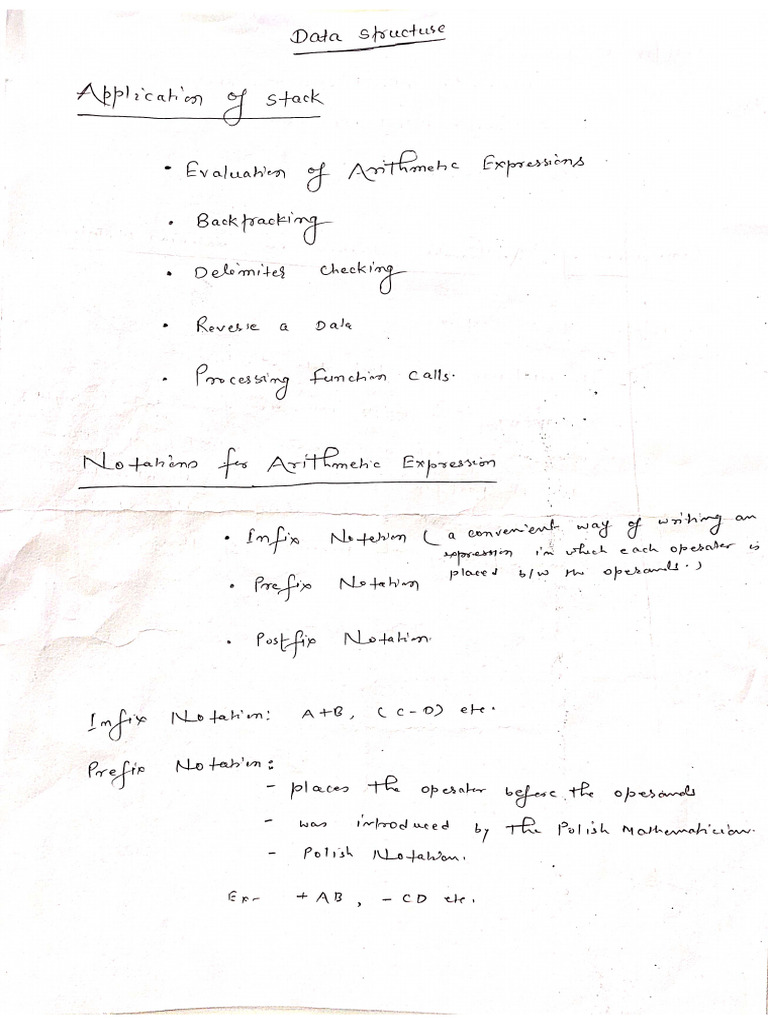 Data Structure
Application of Stack
• Evaluation of Arithmetic Expressions
• Backtracking
• Delimiter Checking
• Reverse a Data
• Processing Function Calls.
Notations for Arithmetic Expression
• Infix Notation ( a convenient way of writing an
expression in which each operator is
placed b/w the operands.)
• Prefix Notation
• Postfix Notation.
Infix Notation: A+B, (C-D) etc.
Prefix Notation:
- places the operator before the operands
- was introduced by the Polish Mathematician.
- Polish Notation.
Ex- +AB, -CD etc.